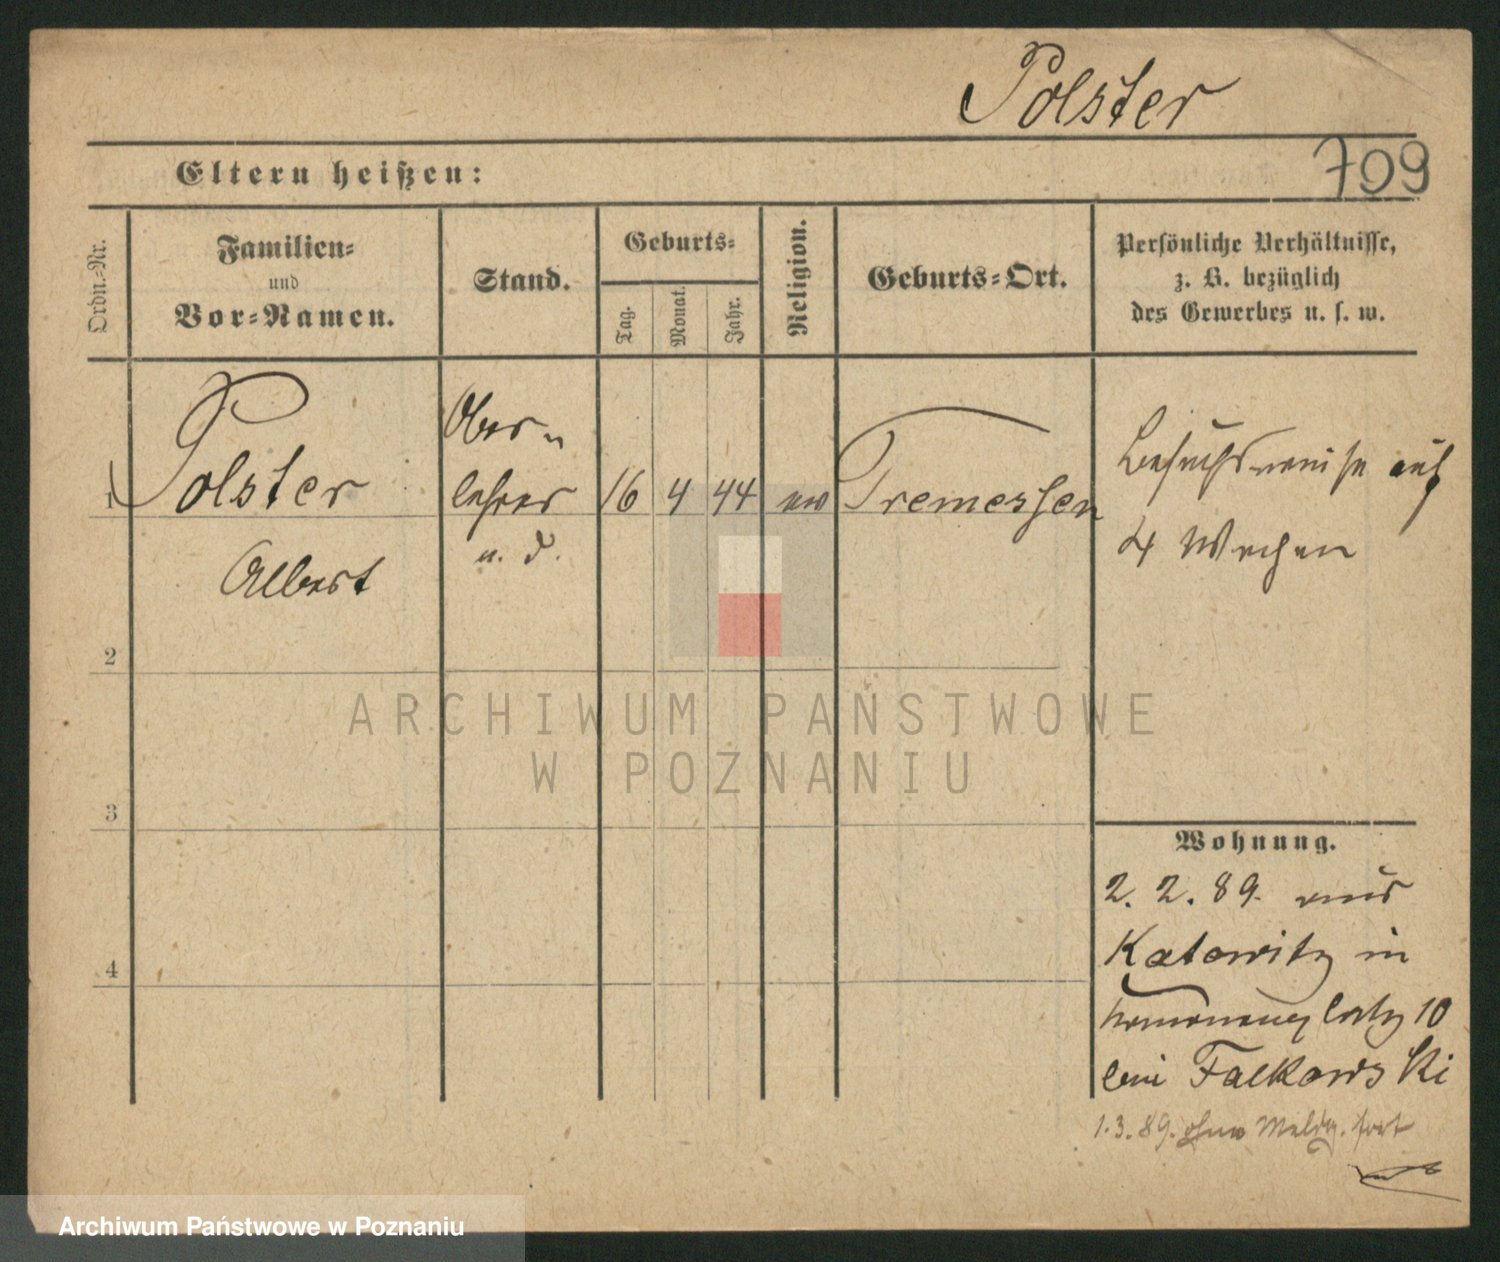 Polster
709
Eltern heißen:
Ordn.-Nr.
Familien-
und
Vor-Namen.
Stand.
Geburts-
Tag.
Monat.
Jahr.
Religion.
Geburts-Ort.
Persönliche Verhältnisse,
z. B. bezüglich
des Gewerbes u. s. w.
1
Polster
Albert
Ober-
lehrer
a. D.
16
4
44
ev
Tremessen
Besuchsweise auf
4 Wochen
2
3
4
Wohnung.
2. 2. 89. aus
Katowitz in
10
bei Falkowski
1.3.89. ohne Meldg. fort
ARCHIWUM PAŃSTWOWE
W POZNANIU
Archiwum Państwowe w Poznaniu